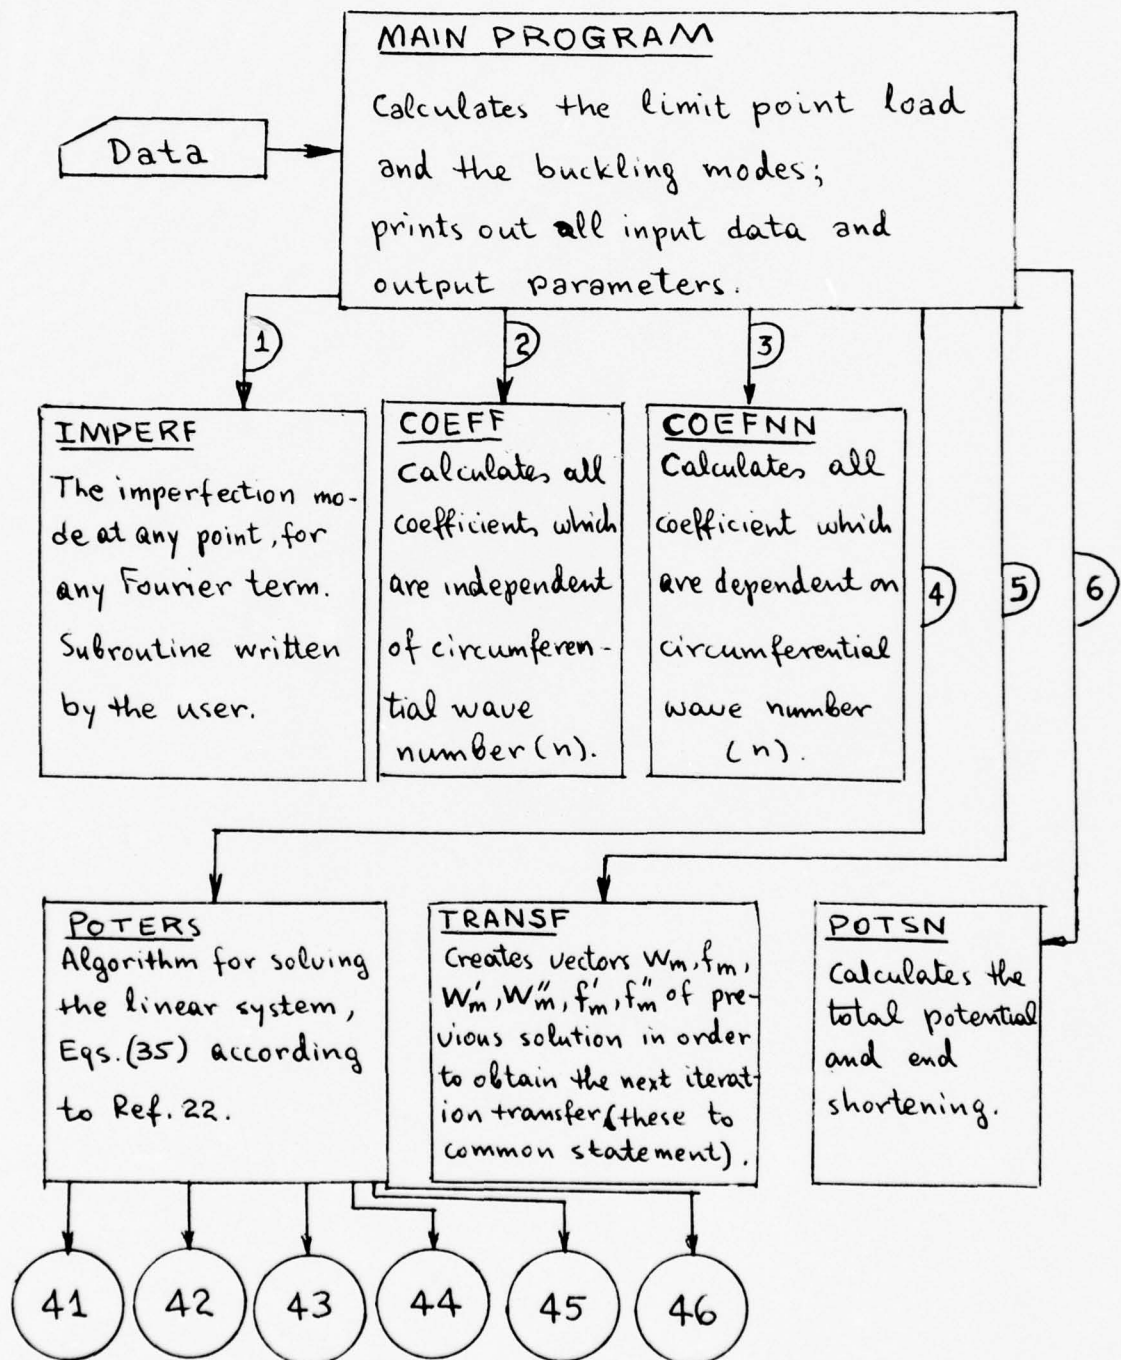 MAIN PROGRAM
Calculates the limit point load
and the buckling modes;
prints out all input data and
output parameters.
Data
1
2
3
IMPERF
The imperfection mo-
de at any point, for
any Fourier term.
Subroutine written
by the user.
COEFF
Calculates all
coefficients which
are independent
of circumferen-
tial wave
number (n).
COEFNN
Calculates all
coefficient which
are dependent on
circumferential
wave number
(n).
4
5
6
POTERS
Algorithm for solving
the linear system,
Eqs. (35) according
to Ref. 22.
TRANSF
Creates vectors Wm, fm,
W'm, W''m, f'm, f''m of pre-
vious solution in order
to obtain the next iterat-
ion transfer (these to
common statement).
POTSN
Calculates the
total potential
and end
shortening.
41
42
43
44
45
46